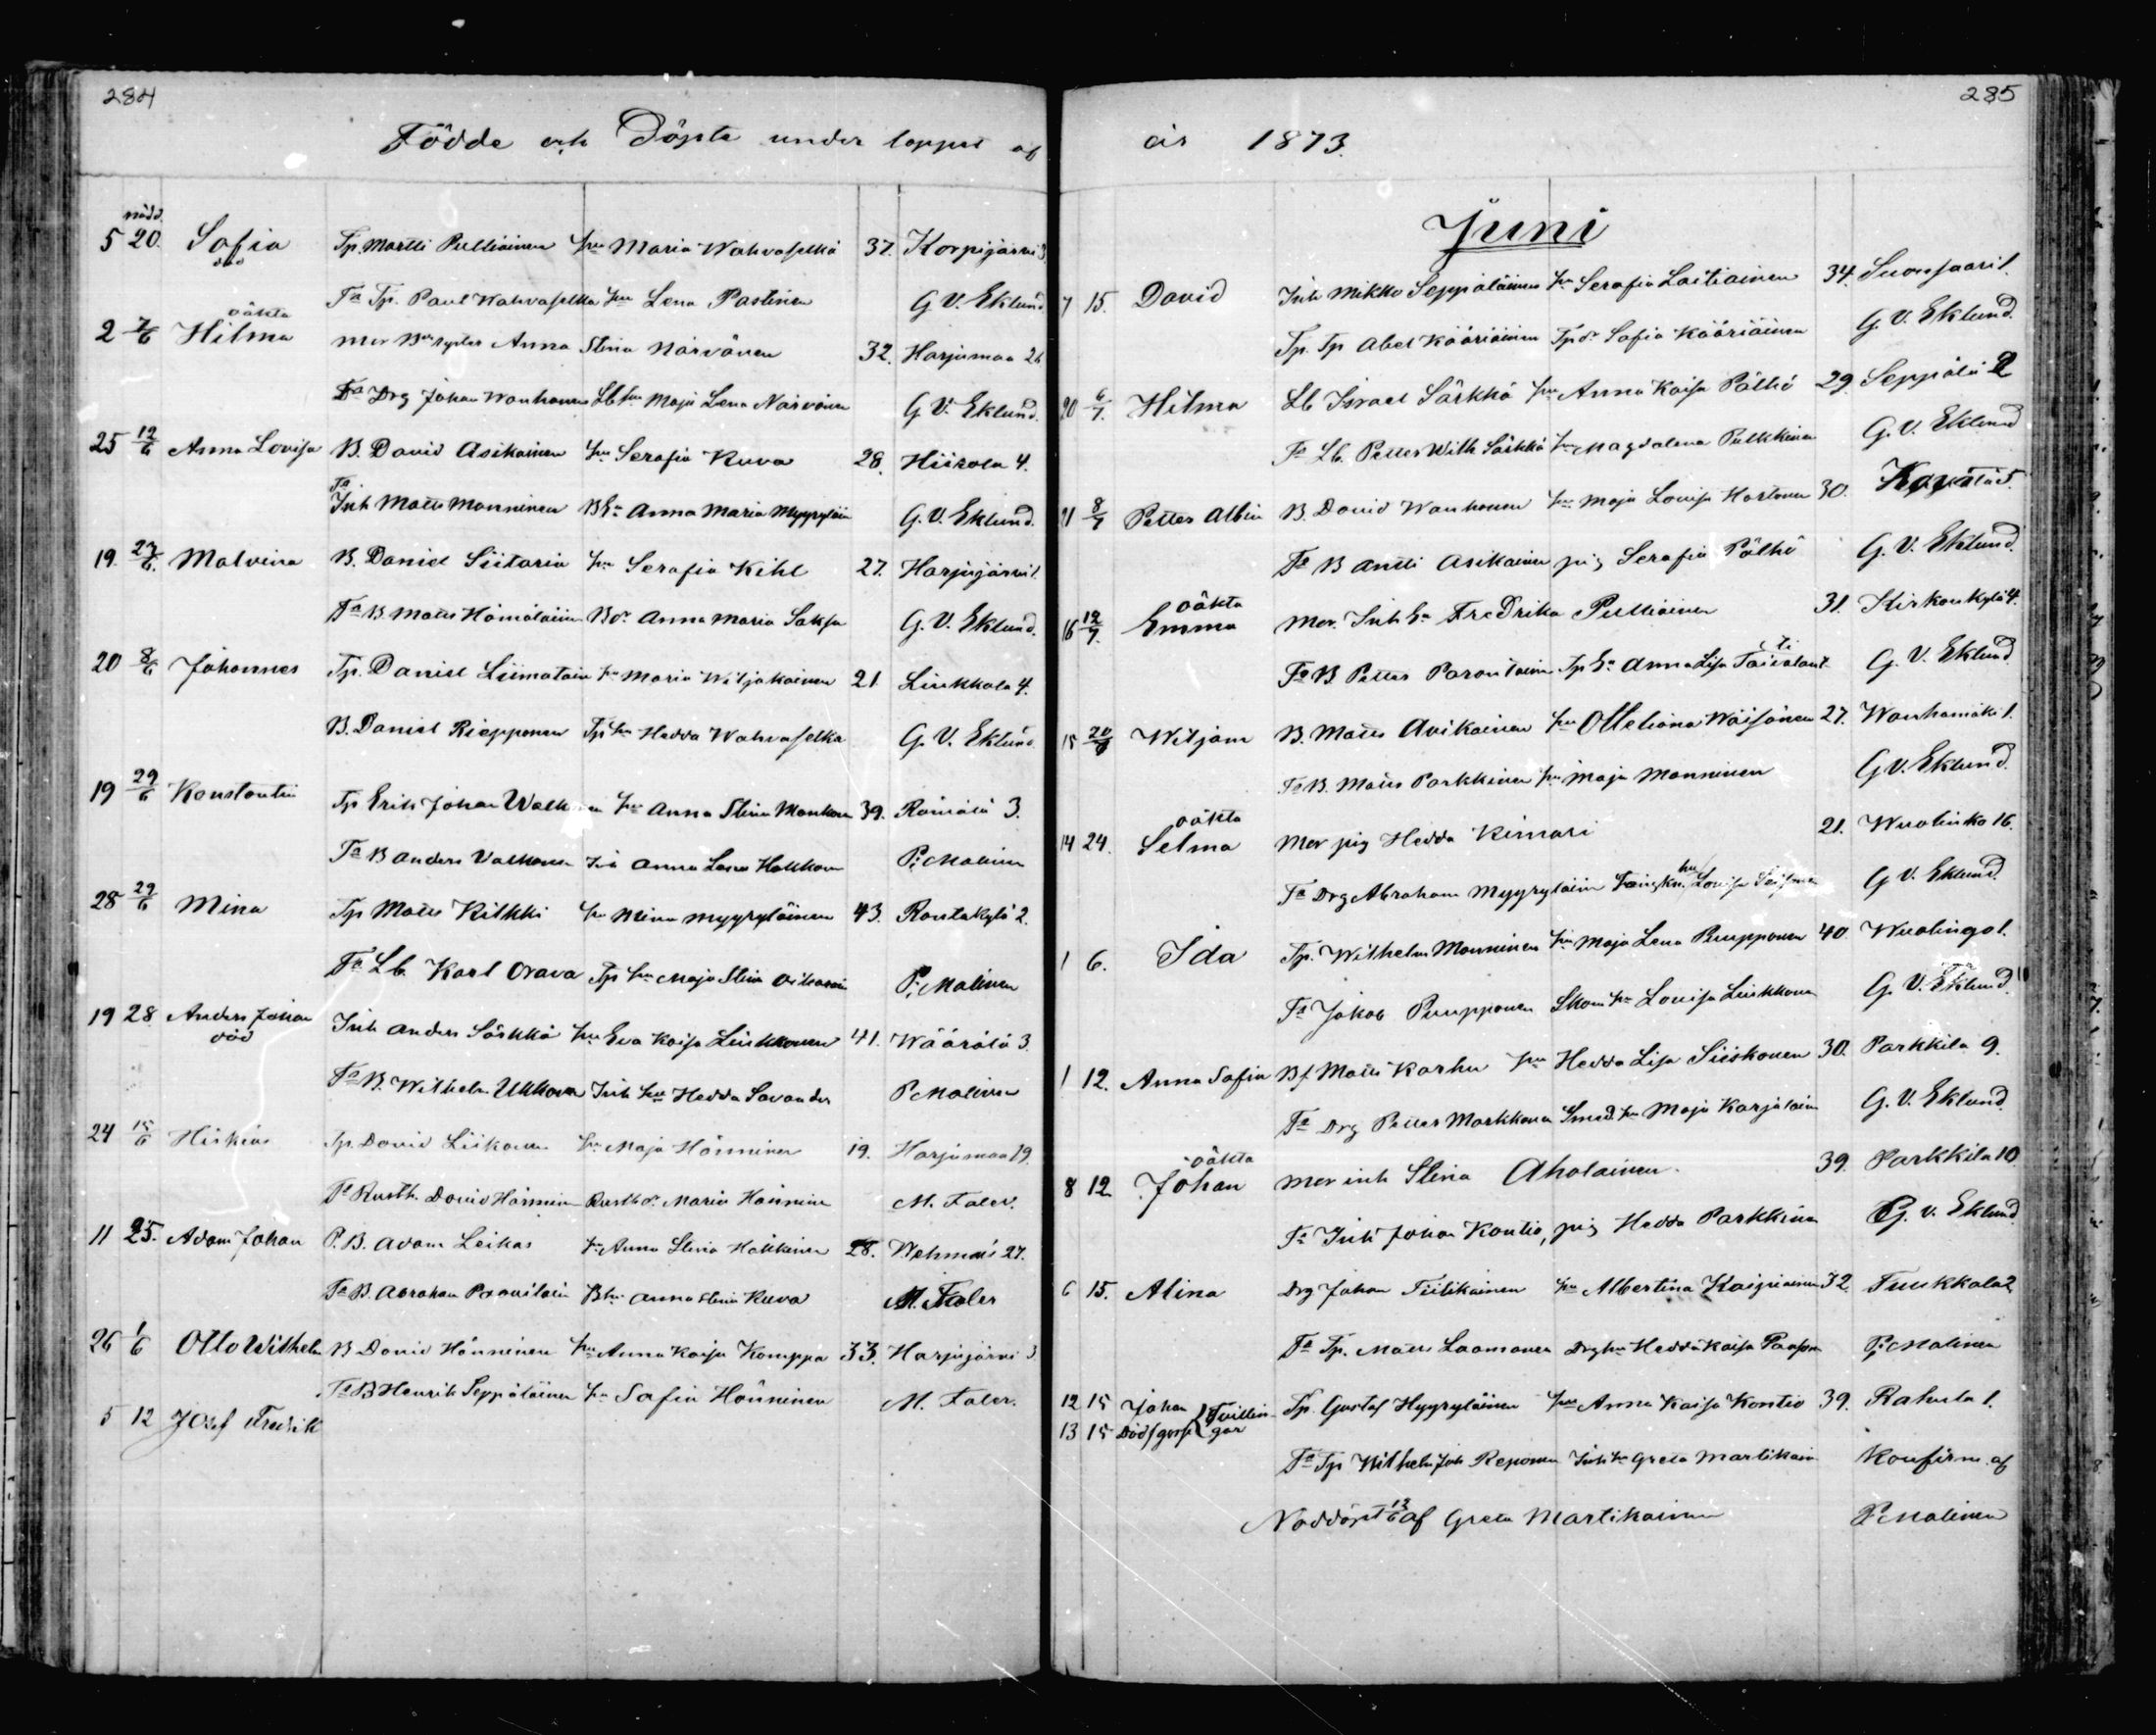 284
Födde och Döpte under loppet af
nödd.
5 20. Sofia Tp. Martti Pulliainen hu Maria Wahvaselkä 37. Korpijärvi 3
död
Fa Tp. Paul Wahvaselka hu Lena Partinen G V. Eklund
oäkta
2 7/6 Hilma mor Anna Stina Närvänen 32. Harjumaa 26
Fa Drg Johan Wanhanen Lb hu Maja Lena Närvänen G V. Eklund.
25 12/6 Anna Lovisa B. David Asikainen hu Serafia Kuva 28. Hiirola 4.
Fa
Inh Matts Manninen Anna Maria Myyryläin G. V. Eklund.
19. 27/6. Malvina B. Daniel Siitarin hu Serafia Kihl 27. Harjujärvi 1.
Fa B Matts Hämäläinen Bdr Anna Maria Saksa G. V. Eklund.
20 8/6 Johannes Tp. Daniel Liimatain hu Maria Wiljakainen 21 Liukkala 4.
B. Daniel Riepponen Tp hu Hedda Wahvaselka G. V. Eklund.
19 29/6 Konstantin Tp Erik Johan hu Anna Stina Mankon 39. Rämälä 3.
Fa B Anders Valkonen Anna Lena P: Malinen
28 29/6 Mina Tp Matts Kilkki hu Mina Myyryläinen 43. Rantakylä 2.
Fa Lb. Karl Orava Tp hu Maja Stina P. Malinen
19 28 Anders Johan Inh Anders Särkkä hu Eva Kaisa Liukkonen 41. Wäärälä 3.
död
Fa B. Wilhelm Ukkonen Inh hu Hedda Savander P Malinen
24 15/6 Hiskias Tp. David Liikanen hu Maja Hänninen 19. Harjumaa 19.
Fa Rusth. David Hännin Rusth dr Maria Hännine M. Faler.
11 25. Adam Johan P. B. Adam Leikas hu Anna Stina Häkkinen 28. Wehmas 27.
Fa B. Abraham Paavilain B hu Anna Stina Kuva M. Faler
26 1/6 Otto Wilhelm B David Hänninen hu Anna Kaisa Komppa 33. Harjujärvi 3
Fa B Henrik Seppäläinen hu Sofia Hänninen M. Faler.
5 12 Josef Fredrik
285
år 1873.
Juni
7 15. David Inh Mikko Seppäläinen hu Serafia Laitiainen 34. Suonsaari 1.
Tp. Tp Abel Kääriäinen Tp dr Sofia Kääriäinen G. V. Eklund.
20 6/7. Hilma Lb Israel Särkkä hu Anna Kaisa Pälhö 29. Seppälä 2
Fa Lb. Petter Wilh Särkkä hu Magdalena Pulkkinen G. V. Eklund
21 8/7 Petter Albin B. David Wanhonen hu Maja Lovisa 30.
Fa B Antti Asikainen pig Serafia Pälhö G. V. Eklund.
oäkta
16 12/7. Emma Mor. Inh hu Fredrika Pulliainen 31. Kirkonkylä 4.
Fa B. Petter Tp hu Anna Lisa G. V. Eklund
Wiljam B. Matts Avikainen hu Otteliana Wäisänen 27. Wanhamäki 1.
Fa B. Matts Parkkinen hu Maja Manninen G V. Eklund.
oäkta
14 24. Selma Mor pig Hedda Kimari 21. Wuolinko 16.
Fa Drg Abraham Myyryläin Lovisa G V. Eklund
1 6. Ida Tp. Wilhelm Manninen hu Maja Lena Puupponen 40. Wuolingo 1.
Fa Jakob Puupponen hu Lovisa Liukkonen G. V. Eklund
1 12. Anna Sofia Bf Matts Karhu hu Hedda Lisa Siiskonen 30. Parkkila 9.
Fa Drg Petter Markkanen Smed. hu Maja Karjalain G. V. Eklund.
oäkta
8 12 Johan mor inh Stina Aholainen. 39. Parkkila 10
Fa Inh Johan Kontio, pig Hedda Parkkinen G. V. Eklund
6 15. Alina Drg Johan Tiilikainen hu Albertina 32. Tuukkala 2
Fa Tp. Matts Laamanen Drg hu Hedda Kaisa P: Malinen
12 15 Johan Tvillin- Tp. Gustaf Hyyryläinen hu Anna Kaisa Kontio 39. Rahula 1.
13 15 Dödf goss gar
Fa Tp Wilhelm Joh Reponen Inh hu Greta Martikain Konfirm. af
Nöddöpt 13/6 af Greta Martikainen P Malinen